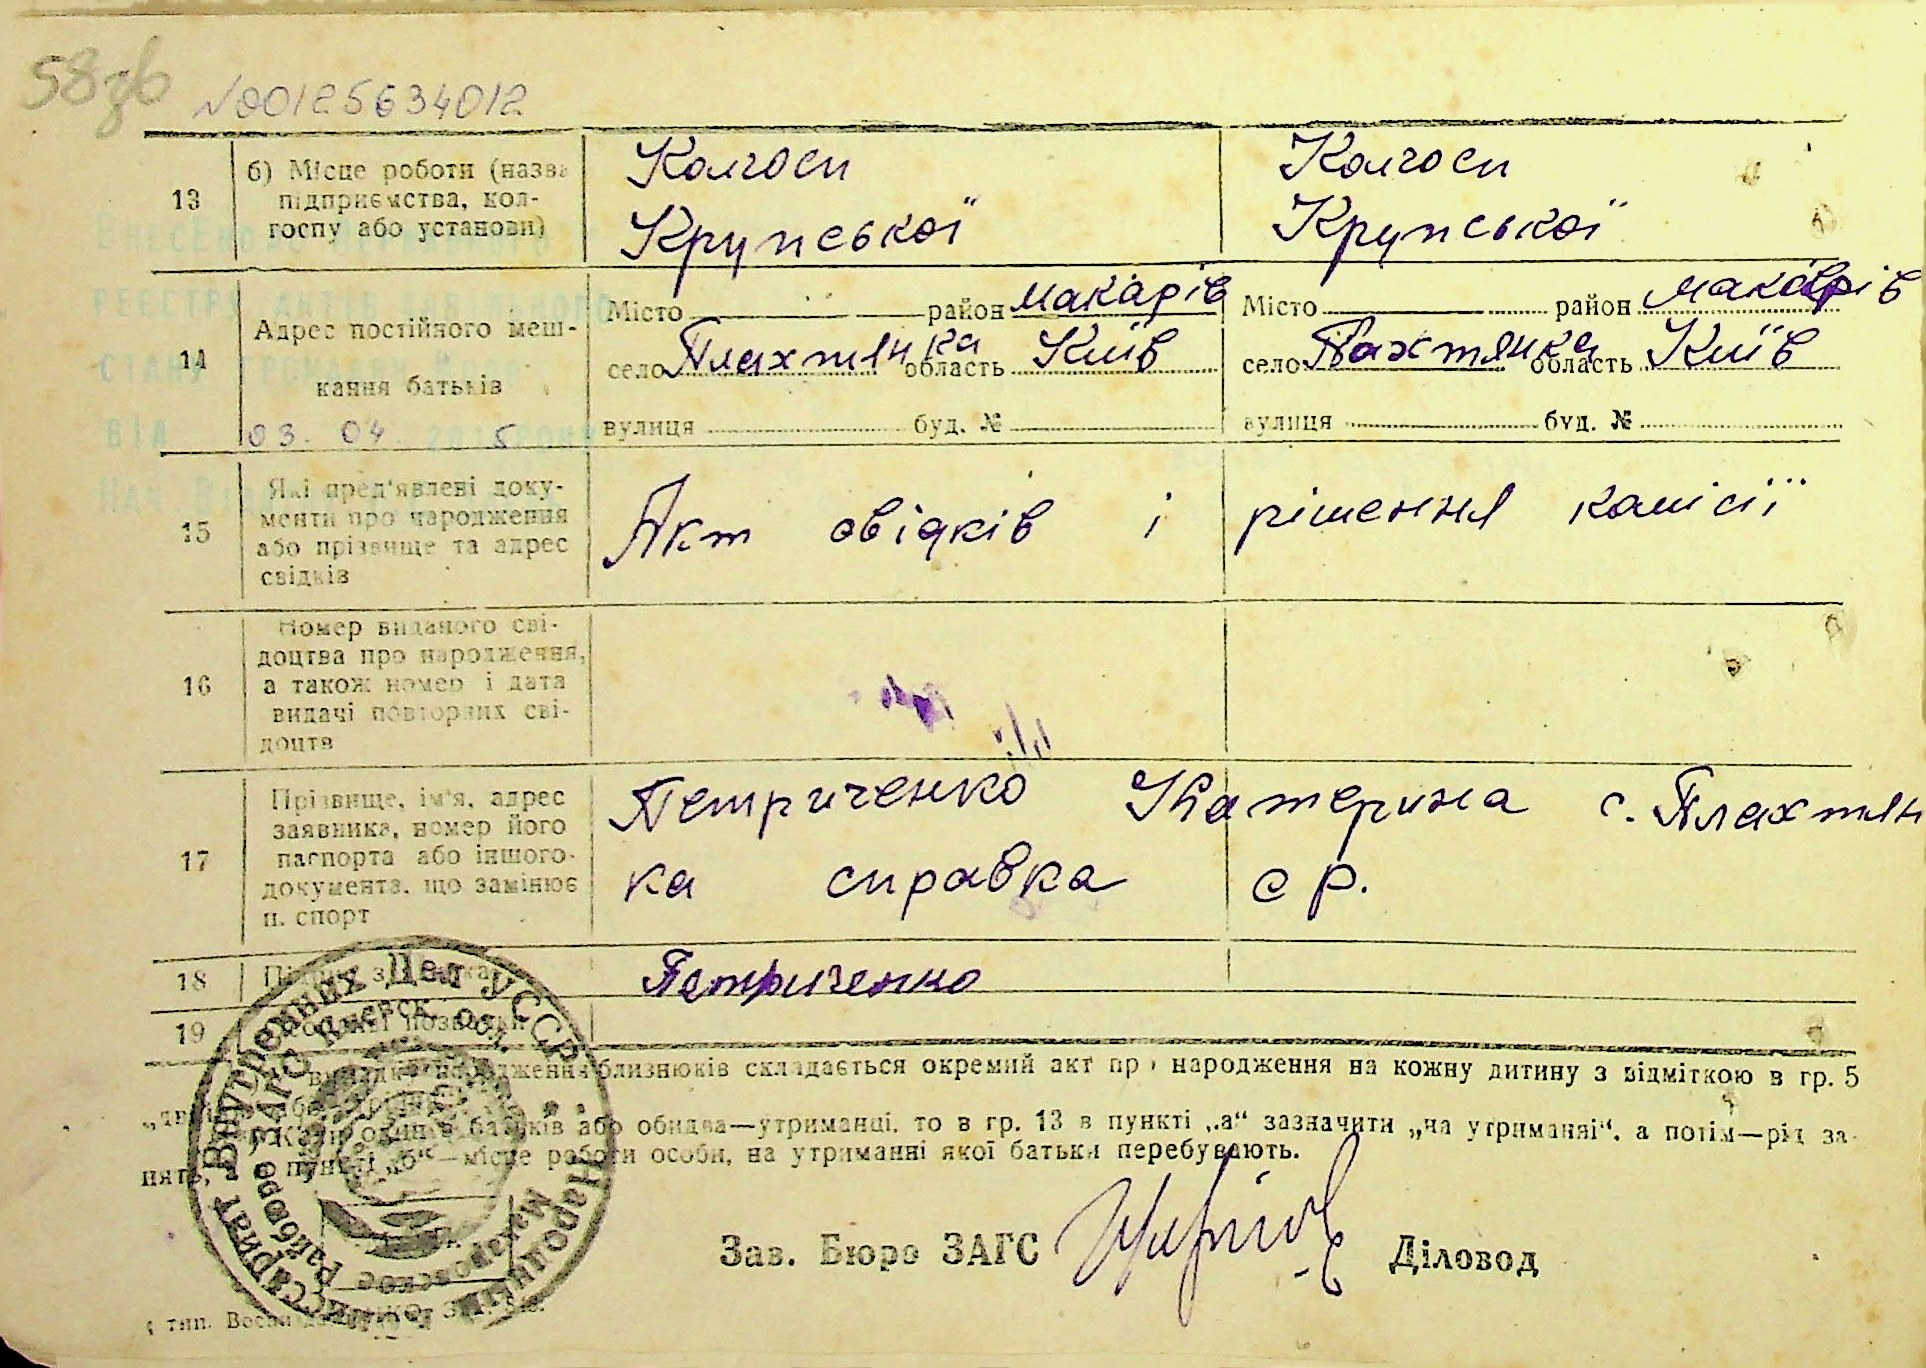 58зв
№00125634012
13
б) Місце роботи (назва
підприємства, кол-
госпу або установи)
Колгосп
Крупської
Колгосп
Крупської
14
Адрес постійного меш-
кання батьків
03. 04. 201 5 року
Місто район Макарів
село Плахтянка область Київ
вулиця буд. №
Місто район Макарів
село Пахтянка область Київ
вулиця буд. №
15
Які пред'явлені доку-
менти про народження
або прізвище та адрес
свідків
Акт свідків і рішення комісії
16
Номер виданого сві-
доцтва про народження,
а також номер і дата
видачі повторних сві-
доцтв
17
Прізвище, ім'я, адрес
заявника, номер його
паспорта або іншого
документа, що замінює
п. спорт
Петриченко Катерина с. Плахтян
ка справка с р.
18
Петриченко
19
народження близнюків складається окремий акт пр народження на кожну дитину з відміткою в гр. 5
один з батьків або обидва—утриманці, то в гр. 13 в пункті „а“ зазначити „на утриманні“, а потім—рід за-
нять, в пункті „б“—місце роботи особи, на утриманні якої батьки перебувають.
Зав. Бюро ЗАГС
Діловод
Народный Комиссариат Внутренних Дел УССР
Макаровское Райбюро ЗАГС Киевск. обл.